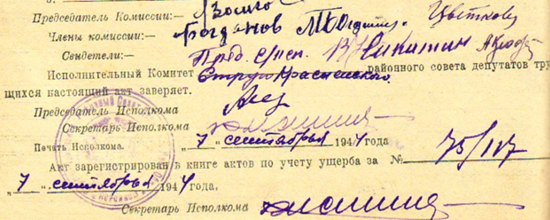 Председатель Комиссии:—
Члены комиссии:— Богданов Цветков
Свидетели:— Пред. с/исп. Никитин
Исполнительный Комитет Струго-Красненского районного совета депутатов тру
щихся настоящий акт заверяет.
Председатель Исполкома
Секретарь Исполкома
Печать Исполкома. „7" сентября 1944 года
Акт зарегистрирован в книге актов по учету ущерба за № 75/117
„7" сентября 1944 года.
Секретарь Исполкома